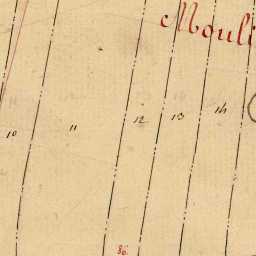 Mouli
10 11 12 13 14
86.